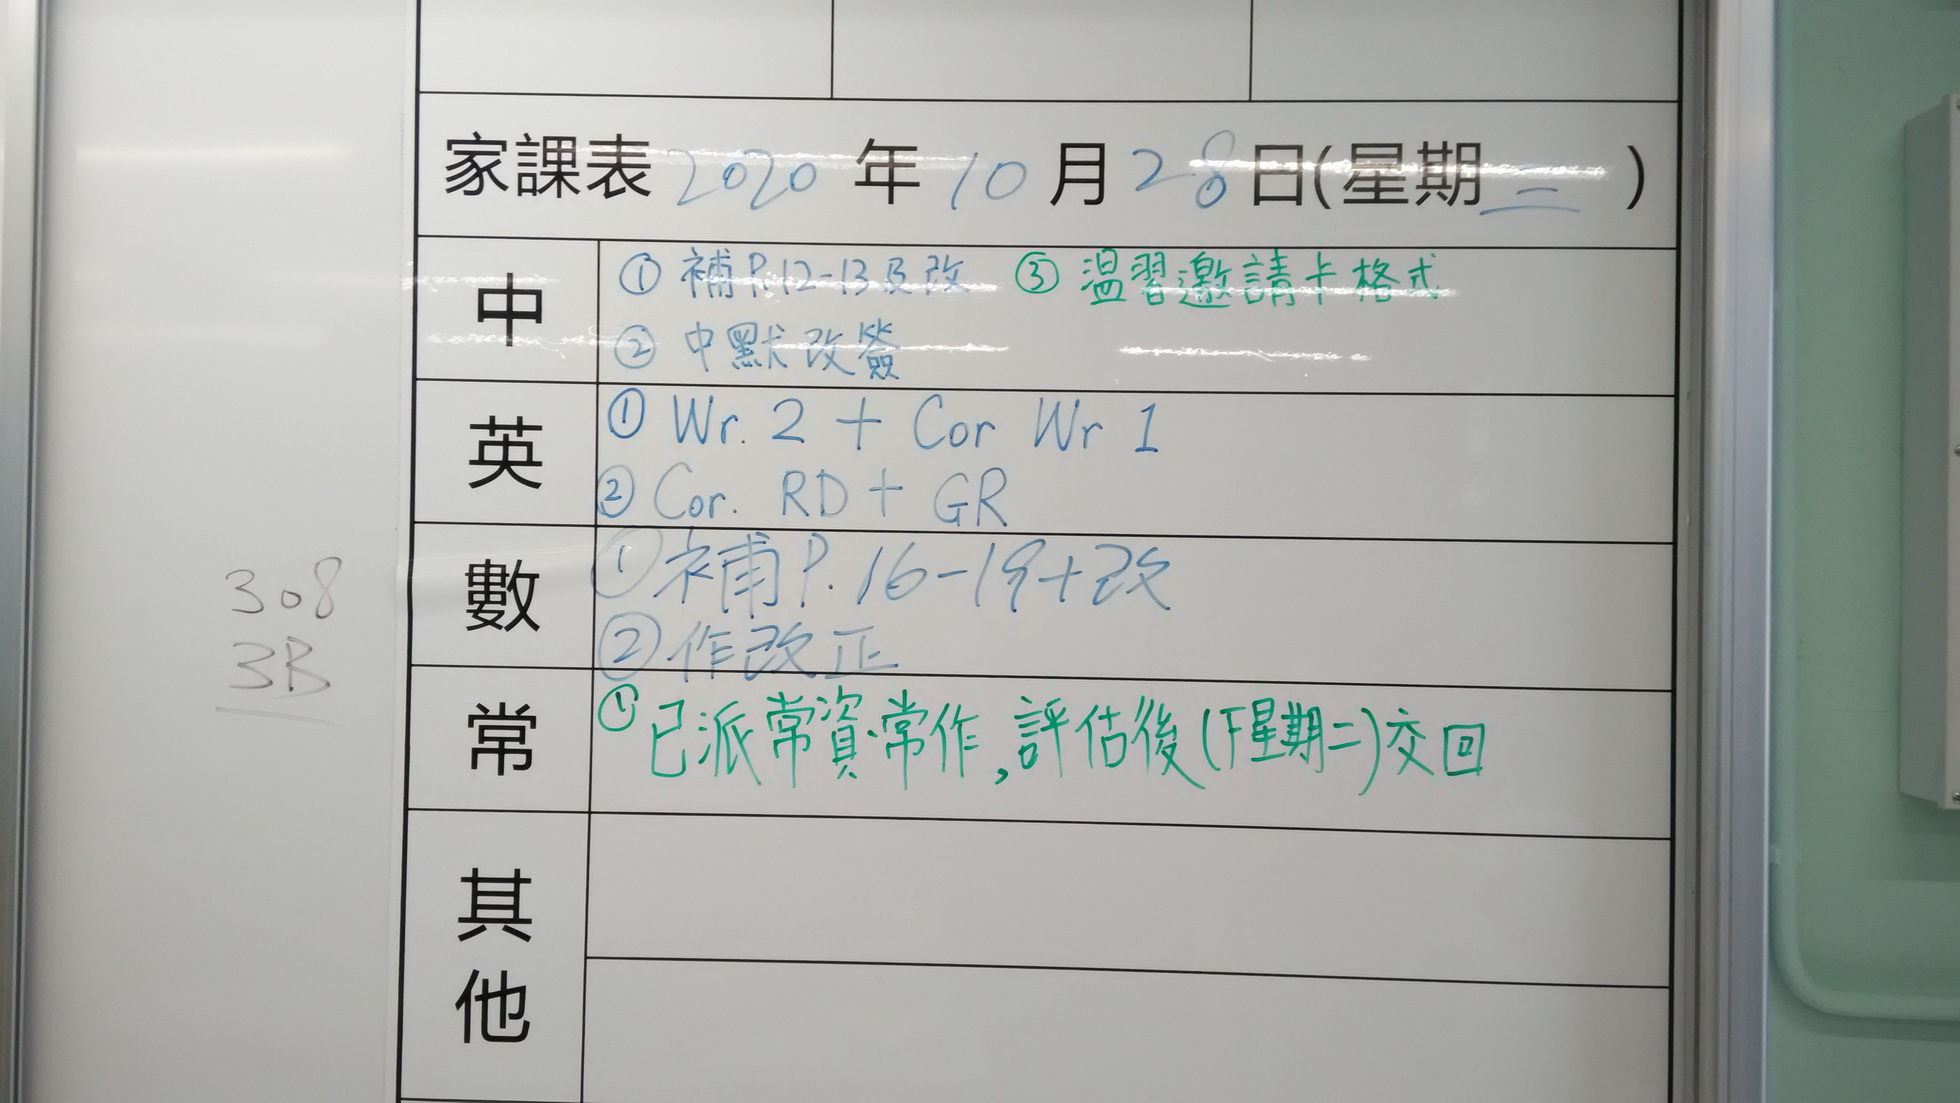 家課表 2020 年 10 月 28 日(星期 三 )
中
① 補P.12-13及改 ③ 溫習邀請卡格式
② 中默改簽
英
① Wr. 2 + Cor Wr 1
② Cor. RD + GR
數
① 補P. 16-19+改
② 作改正
常
① 已派常資、常作,評估後(下星期二)交回
其他
308
3B